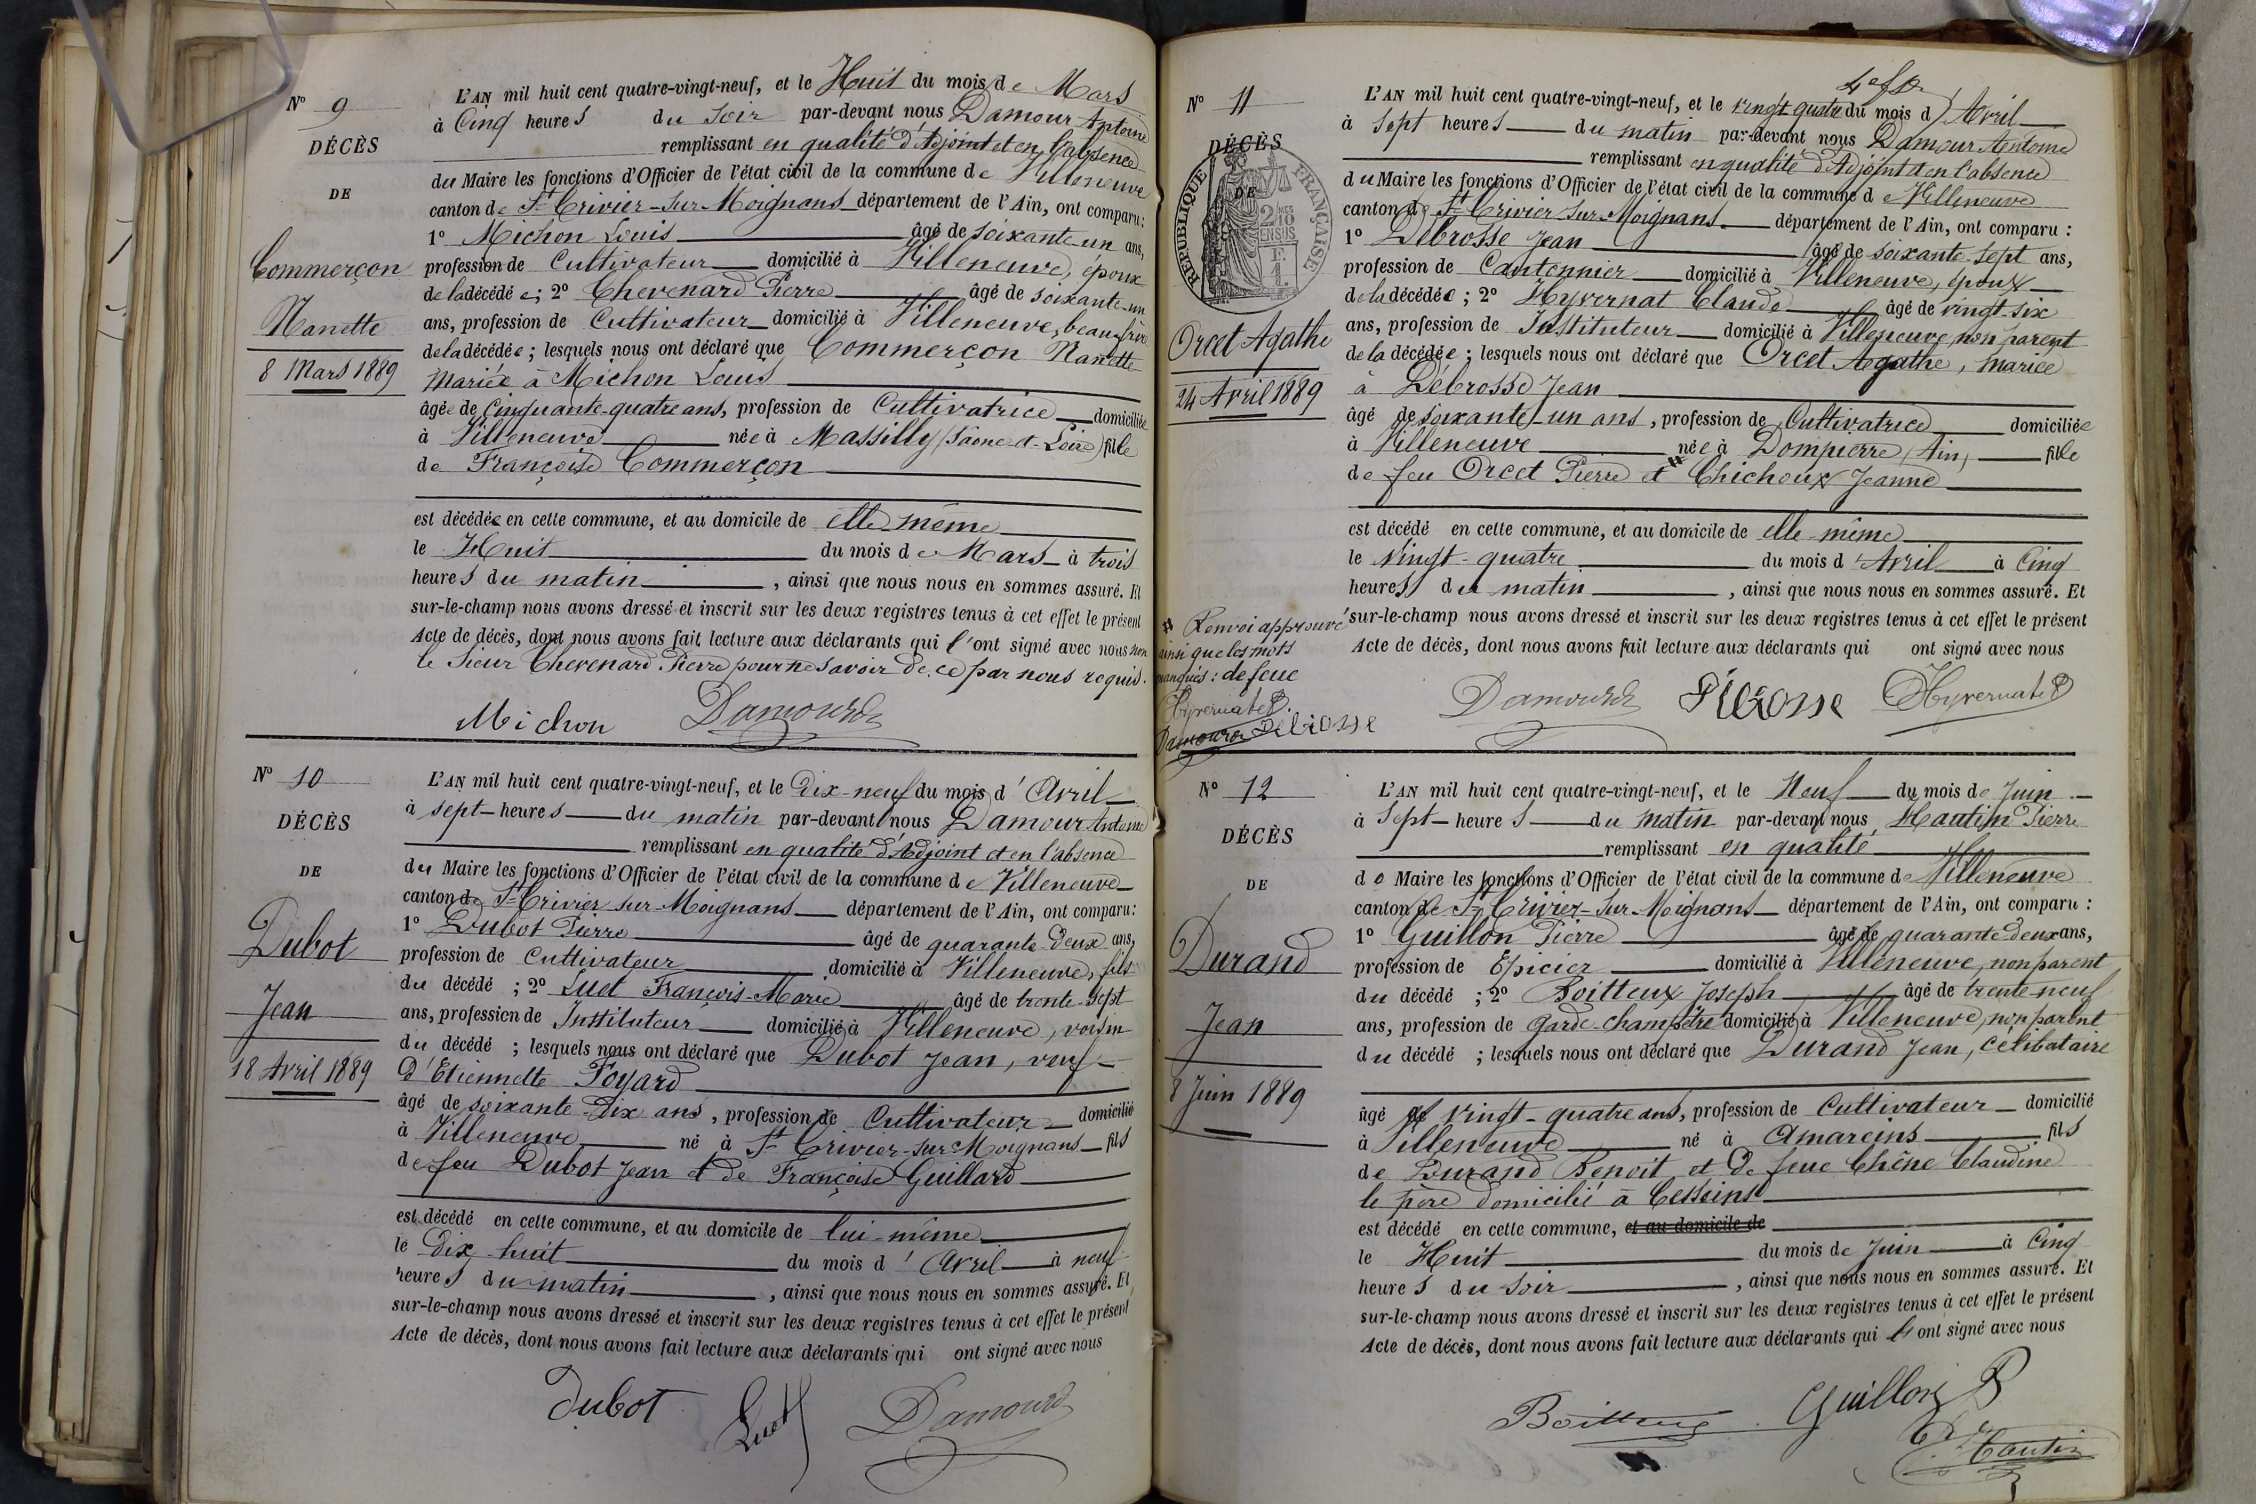 N° 9
DÉCÈS
DE
Commerçon
Nanette
8 Mars 1889
L'AN mil huit cent quatre-vingt-neuf, et le Huit du mois de Mars
à Cinq heures du soir par-devant nous Damour Antoine
remplissant en qualité d'Adjoint et en l'absence
du Maire les fonctions d'Officier de l'état civil de la commune de Villeneuve
canton de St Trivier-sur-Moignans département de l'Ain, ont comparu :
1° Michon Louis âgé de soixante-un ans,
profession de Cultivateur domicilié à Villeneuve, époux
de la décédée ; 2° Chevenard Pierre âgé de soixante-un
ans, profession de Cultivateur domicilié à Villeneuve, beau-frère
de la décédée ; lesquels nous ont déclaré que Commerçon Nanette
mariée à Michon Louis
âgée de Cinquante-quatre ans, profession de Cultivatrice domiciliée
à Villeneuve née à Massilly (Saône-et-Loire) fille
de Françoise Commerçon
est décédée en cette commune, et au domicile de elle-même
le Huit du mois de Mars à trois
heures du matin, ainsi que nous nous en sommes assuré. Et
sur-le-champ nous avons dressé et inscrit sur les deux registres tenus à cet effet le présent
Acte de décès, dont nous avons fait lecture aux déclarants qui l'ont signé avec nous non
le Sieur Chevenard Pierre pour ne savoir de ce par nous requis.
Michon Damour
N° 10
DÉCÈS
DE
Dubot
Jean
18 Avril 1889
L'AN mil huit cent quatre-vingt-neuf, et le Dix-neuf du mois d'Avril
à sept heures du matin par-devant nous Damour Antoine
remplissant en qualité d'Adjoint et en l'absence
du Maire les fonctions d'Officier de l'état civil de la commune de Villeneuve
canton de St Trivier-sur-Moignans département de l'Ain, ont comparu :
1° Dubot Pierre âgé de quarante-deux ans,
profession de Cultivateur domicilié à Villeneuve, fils
du décédé ; 2° Luet François-Marie âgé de trente-sept
ans, profession de Instituteur domicilié à Villeneuve, voisin
du décédé ; lesquels nous ont déclaré que Dubot Jean, veuf
d'Etiennette Foyard
âgé de soixante-dix ans, profession de Cultivateur domicilié
à Villeneuve né à St Trivier-sur-Moignans fils
de feu Dubot Jean et de Françoise Guillard
est décédé en cette commune, et au domicile de lui-même
le Dix-huit du mois d'Avril à neuf
heures du matin, ainsi que nous nous en sommes assuré. Et
sur-le-champ nous avons dressé et inscrit sur les deux registres tenus à cet effet le présent
Acte de décès, dont nous avons fait lecture aux déclarants qui ont signé avec nous
Dubot Luet Damour
N° 11
DÉCÈS
DE
RÉPUBLIQUE FRANÇAISE
Orcet Agathe
24 Avril 1889
L'AN mil huit cent quatre-vingt-neuf, et le vingt-quatre du mois d'Avril
à sept heures du matin par-devant nous Damour Antoine
remplissant en qualité d'Adjoint et en l'absence
du Maire les fonctions d'Officier de l'état civil de la commune de Villeneuve
canton de St Trivier-sur-Moignans département de l'Ain, ont comparu :
1° Débrosse Jean âgé de soixante-sept ans,
profession de Cantonnier domicilié à Villeneuve, époux
de la décédée ; 2° Hyvernat Claude âgé de vingt-six
ans, profession de Instituteur domicilié à Villeneuve non parent
de la décédée ; lesquels nous ont déclaré que Orcet Agathe, mariée
à Débrosse Jean
âgé de soixante-un ans, profession de Cultivatrice domiciliée
à Villeneuve née à Dompierre (Ain) fille
de feu Orcet Pierre et Chichoux Jeanne
est décédé en cette commune, et au domicile de elle-même
le vingt-quatre du mois d'Avril à Cinq
heures du matin, ainsi que nous nous en sommes assuré. Et
sur-le-champ nous avons dressé et inscrit sur les deux registres tenus à cet effet le présent
Acte de décès, dont nous avons fait lecture aux déclarants qui ont signé avec nous
# Renvoi approuvé
ainsi que les mots
manqués : de feue
Hyvernat
Damour Débrosse
Damour Débrosse Hyvernat
N° 12
DÉCÈS
DE
Durand
Jean
8 Juin 1889
L'AN mil huit cent quatre-vingt-neuf, et le Neuf du mois de Juin
à Sept heures du matin par-devant nous Hautin Pierre
remplissant en qualité
de Maire les fonctions d'Officier de l'état civil de la commune de Villeneuve
canton de St Trivier-sur-Moignans département de l'Ain, ont comparu :
1° Guillon Pierre âgé de quarante-deux ans,
profession de Epicier domicilié à Villeneuve, non parent
du décédé ; 2° Boitteux Joseph âgé de trente-neuf
ans, profession de garde-champêtre domicilié à Villeneuve, non parent
du décédé ; lesquels nous ont déclaré que Durand Jean, célibataire
âgé de vingt-quatre ans, profession de Cultivateur domicilié
à Villeneuve né à Amareins fils
de Durand Benoit et de feue Chêne Claudine
le père domicilié à Cesseins
est décédé en cette commune, et au domicile de
le Huit du mois de Juin à Cinq
heures du soir, ainsi que nous nous en sommes assuré. Et
sur-le-champ nous avons dressé et inscrit sur les deux registres tenus à cet effet le présent
Acte de décès, dont nous avons fait lecture aux déclarants qui ont signé avec nous
Boitteux Guillon P
Hautin